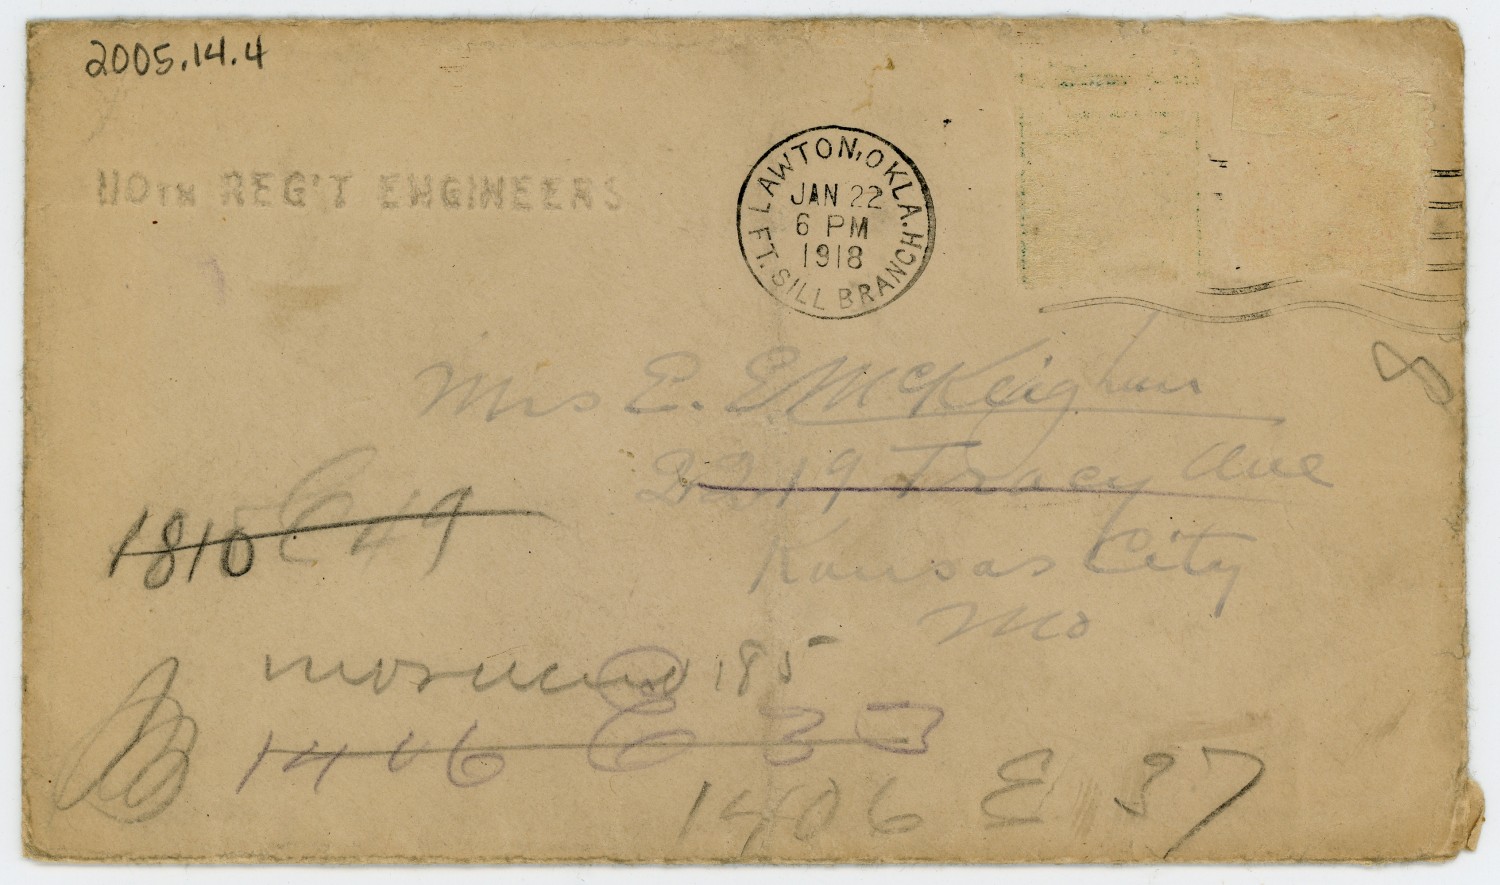 2005.14.4
110TH REG'T ENGINEERS
LAWTON, OKLA.
JAN 22
6 PM
1918
FT. SILL BRANCH
8
Mrs E. E McKeighan
2219 Tracy Ave
1810 E 49
Kansas City
Mo
185
1406 E 33
1406 E 37